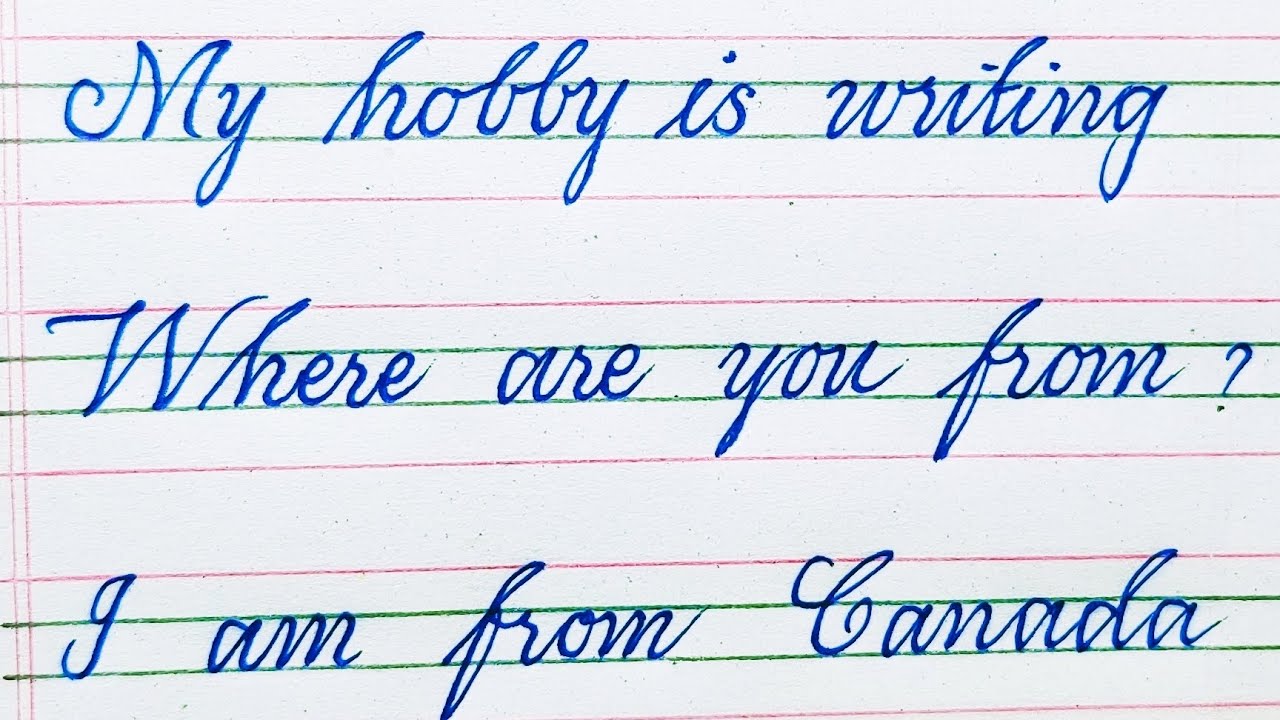 My hobby is writing
Where are you from ?
I am from Canada